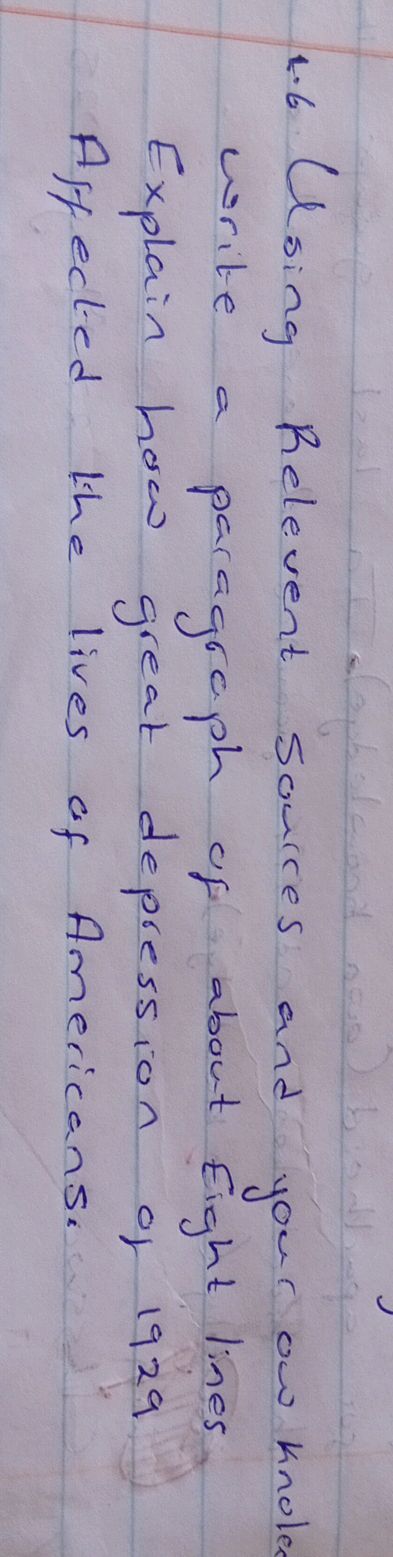 1.6 Using Relevent Sources and your ow knole
write a paragraph of about Eight lines
Explain how great depression of 1929
Affected the lives of Americans.